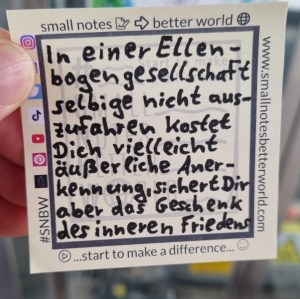 small notes better world
In einer Ellen-
bogengesellschaft
selbige nicht aus-
zufahren kostet
Dich vielleicht
äußerliche Aner-
kennung, sichert Dir
aber das Geschenk
des inneren Friedens
...start to make a difference...
#SNBW
www.smallnotesbetterworld.com